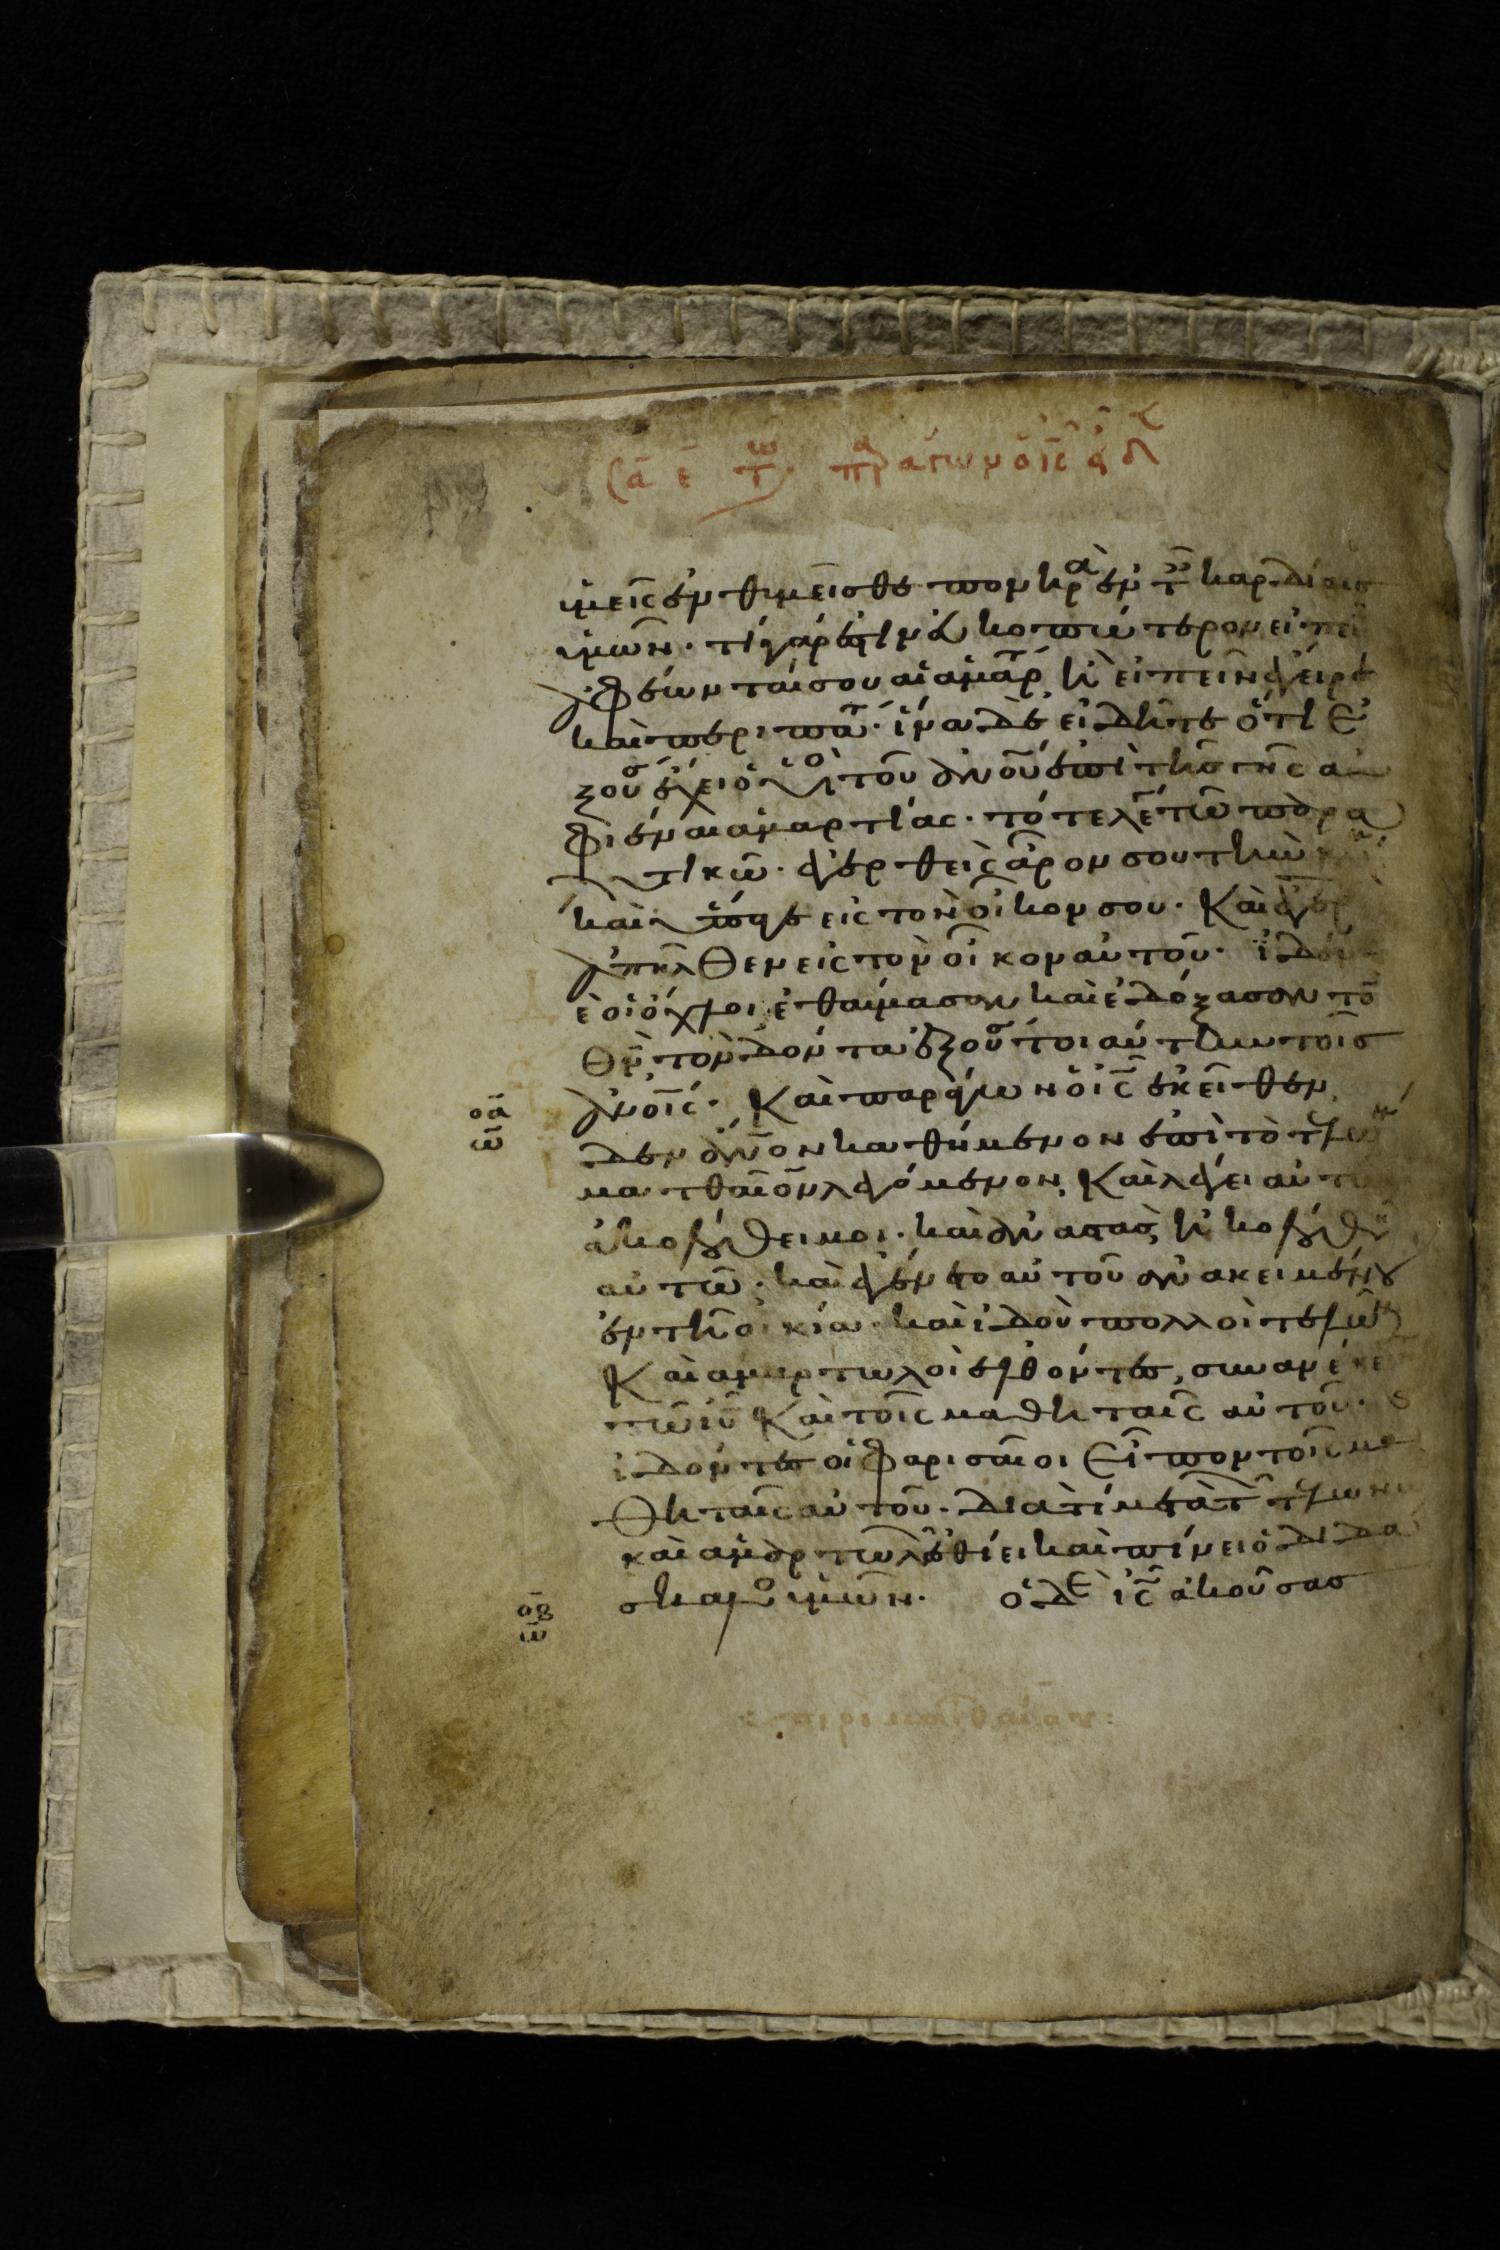 ὑμεῖς ἐνθυμεῖσθε πονηρὰ ἐν τ καρδίαις
ὑμῶν· τί γάρ ἐστιν εὐκοπώτερον εἰπεῖ
ἀφέωνταί σου αἱ ἁμαρ ἢ εἰπεῖν ἔγειρε
καὶ περιπα· ἵνα δὲ εἰδῆτε ὅτι ἐ
ξουσ ἔχει ὁ υἱὸ τοῦ ἀνου ἐπὶ τῆς γῆς ἀ
φιέναι ἁμαρτίας· τότε λέγ τῶ παρα
λυτικῶ· ἐγερθεὶς ἆρον σου τὴν
καὶ ὕπαγε εἰς τὸν οἶκον σου· Καὶ ἐγερ
ἀπῆλθεν εἰς τὸν οἶκον αὐτοῦ· ἰδόν
ἐ οἱ ὄχλοι ἐθαύμασαν καὶ ἐδόξασαν τὸ
θν τὸν δόντα ἐξουσ τοιαύτην τοῖς
ἀνοις· Καὶ παράγων ὁ ις ἐκεῖθεν
δεν ἀνον καθήμενον ἐπὶ τὸ τελων
ματθαῖον λεγόμενον, Καὶ λέγει αὐτ
ἀκολούθει μοι· καὶ ἀναστὰς ἠκολούθη
αὐτῶ· καὶ ἐγένετο αὐτοῦ ἀνακειμένου
ἐν τῆ οἰκία καὶ ἰδοὺ πολλοὶ τελῶν
Καὶ ἁμαρτωλοὶ ἐλθόντες, συνανέκει
τῶ ιυ Καὶ τοῖς μαθηταῖς αὐτοῦ·
ἰδόντες οἱ φαρισαῖοι εἶπον τοῖς μα
θηταῖς αὐτοῦ· διατί μετὰ τ τελων
καὶ ἁμαρτωλ ἐσθίει καὶ πίνει ὁ διδά
σκαλο ὑμῶν· ὁ δὲ ις ἀκούσας
οα
ω
οβ
ω
περὶ ματθαίου: